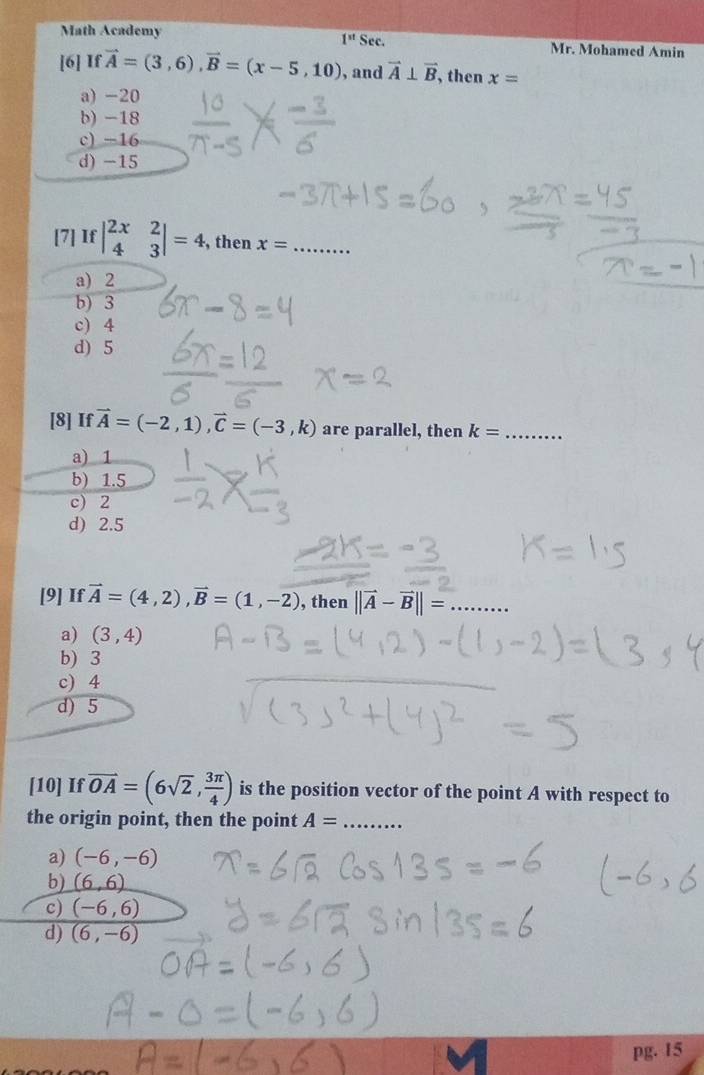 Math Academy
1st Sec.
Mr. Mohamed Amin
[6] If A⃗ = (3 , 6) , B⃗ = (x − 5 , 10), and A⃗ ⊥ B⃗, then x =
a) −20
b) −18
c) −16
d) −15
10/x-5 -3/6
-3x+15=60 , -3x/-3 = 45/-3
x=-1
[7] If |2x 2; 4 3| = 4, then x = .........
a) 2
b) 3
c) 4
d) 5
6x-8=4
6x/6 = 12/6 x=2
[8] If A⃗ = (−2 , 1) , C⃗ = (−3 , k) are parallel, then k = .........
a) 1
b) 1.5
c) 2
d) 2.5
1/-2 K/-3
-2K = -3/-2 K=1.5
[9] If A⃗ = (4 , 2) , B⃗ = (1 , −2), then ‖A⃗ − B⃗‖ = .........
a) (3 , 4)
b) 3
c) 4
d) 5
A-B=(4,2)-(1,-2)=(3,4
√(3)²+(4)² = 5
[10] If OA⃗ = (6√2 , 3π/4) is the position vector of the point A with respect to
the origin point, then the point A = .........
a) (−6 , −6)
b) (6 , 6)
c) (−6 , 6)
d) (6 , −6)
x=6√2 Cos135=-6 (-6,6
y=6√2 Sin135=6
OA⃗=(-6,6)
A-O=(-6,6)
A=(-6,6)
M
pg. 15